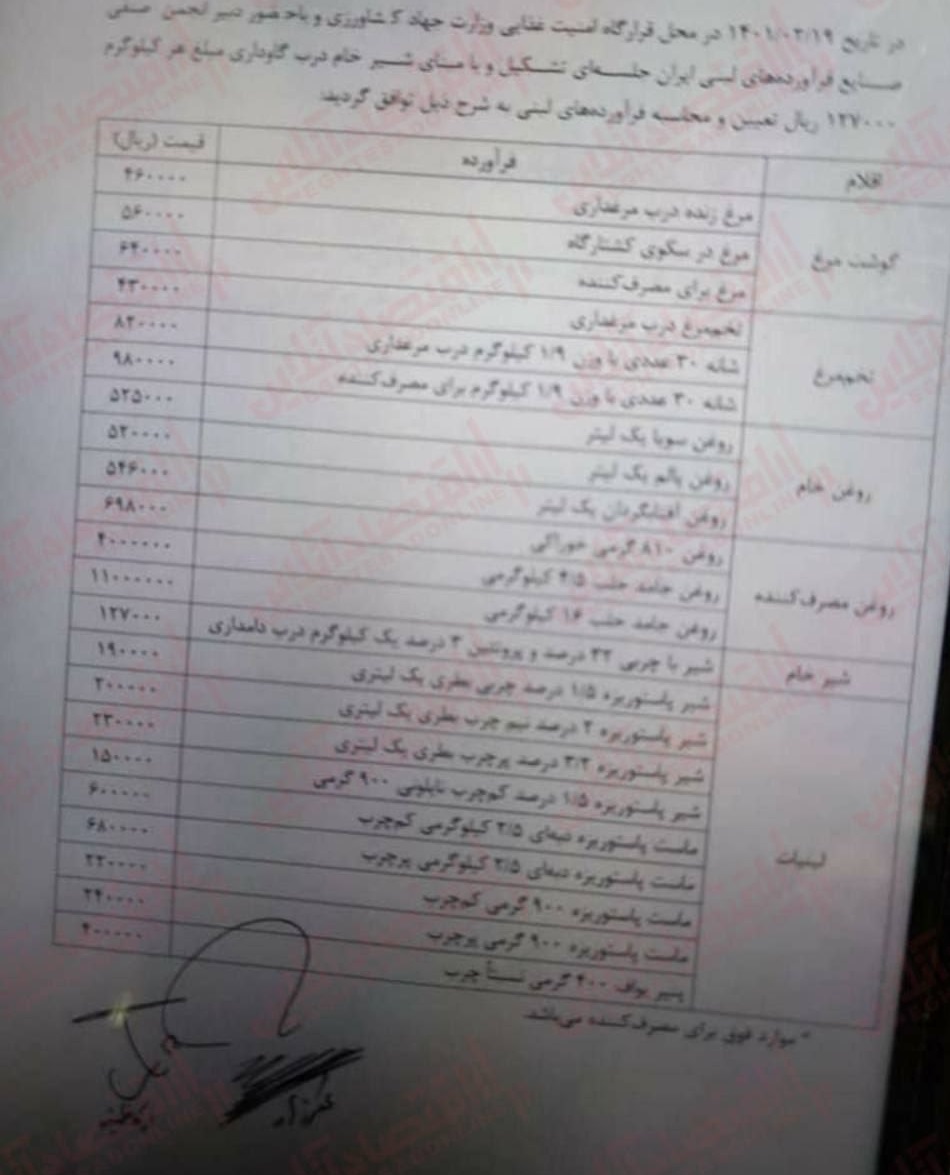 در تاریخ ۱۴۰۱/۰۲/۱۹ در محل قرارگاه امنیت غذایی وزارت جهاد کشاورزی و باحضور دبیر انجمن صنفی
صنایع فرآورده‌های لبنی ایران جلسه‌ای تشکیل و با مبنای شیر خام درب گاوداری مبلغ هر کیلوگرم
۱۲۷۰۰۰ ریال تعیین و محاسبه فرآورده‌های لبنی به شرح ذیل توافق گردید:
اقلام فرآورده قیمت (ریال)
گوشت مرغ
مرغ زنده درب مرغداری ۴۶۰۰۰۰
مرغ در سکوی کشتارگاه ۵۶۰۰۰۰
مرغ برای مصرف‌کننده ۶۴۰۰۰۰
تخم‌مرغ
تخم‌مرغ درب مرغداری ۴۳۰۰۰۰
شانه ۳۰ عددی با وزن ۱/۹ کیلوگرم درب مرغداری ۸۲۰۰۰۰
شانه ۳۰ عددی با وزن ۱/۹ کیلوگرم برای مصرف‌کننده ۹۸۰۰۰۰
روغن خام
روغن سویا یک لیتر ۵۲۵۰۰۰
روغن پالم یک لیتر ۵۲۰۰۰۰
روغن آفتابگردان یک لیتر ۵۴۶۰۰۰
روغن مصرف‌کننده
روغن ۸۱۰ گرمی خوراکی ۶۹۸۰۰۰
روغن جامد حلب ۴/۵ کیلوگرمی ۴۰۰۰۰۰۰
روغن جامد حلب ۱۶ کیلوگرمی ۱۱۰۰۰۰۰۰
شیر خام
شیر با چربی ۳۲ درصد و پروتئین ۳ درصد یک کیلوگرم درب دامداری ۱۲۷۰۰۰
لبنیات
شیر پاستوریزه ۱/۵ درصد چربی بطری یک لیتری ۱۹۰۰۰۰
شیر پاستوریزه ۲ درصد نیم چرب بطری یک لیتری ۲۰۰۰۰۰
شیر پاستوریزه ۳/۲ درصد پرچرب بطری یک لیتری ۲۳۰۰۰۰
شیر پاستوریزه ۱/۵ درصد کم‌چرب نایلونی ۹۰۰ گرمی ۱۵۰۰۰۰
ماست پاستوریزه دبه‌ای ۲/۵ کیلوگرمی کم‌چرب ۶۰۰۰۰۰
ماست پاستوریزه دبه‌ای ۲/۵ کیلوگرمی پرچرب ۶۸۰۰۰۰
ماست پاستوریزه ۹۰۰ گرمی کم‌چرب ۲۲۰۰۰۰
ماست پاستوریزه ۹۰۰ گرمی پرچرب ۲۴۰۰۰۰
پنیر یواف ۴۰۰ گرمی نسبتاً چرب ۴۰۰۰۰۰
* موارد فوق برای مصرف‌کننده می‌باشد.